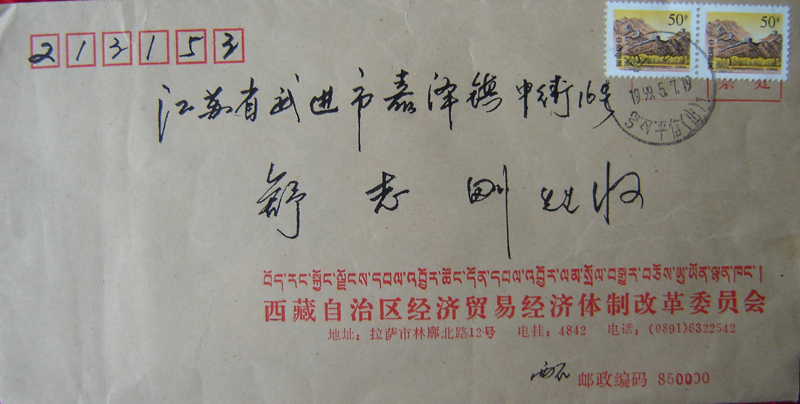 213153
50分 50分
1999.5.7.19
江苏省武进市嘉泽镇中街16号
舒志刚 先生收
བོད་རང་སྐྱོང་ལྗོངས་དཔལ་འབྱོར་ཚོང་དོན་དཔལ་འབྱོར་ལམ་སྲོལ་བསྒྱུར་བཅོས་ཨུ་ཡོན་ལྷན་ཁང་།
西藏自治区经济贸易经济体制改革委员会
地址：拉萨市林廓北路12号 电挂：4842 电话：(0891)6322542
邮政编码 850000